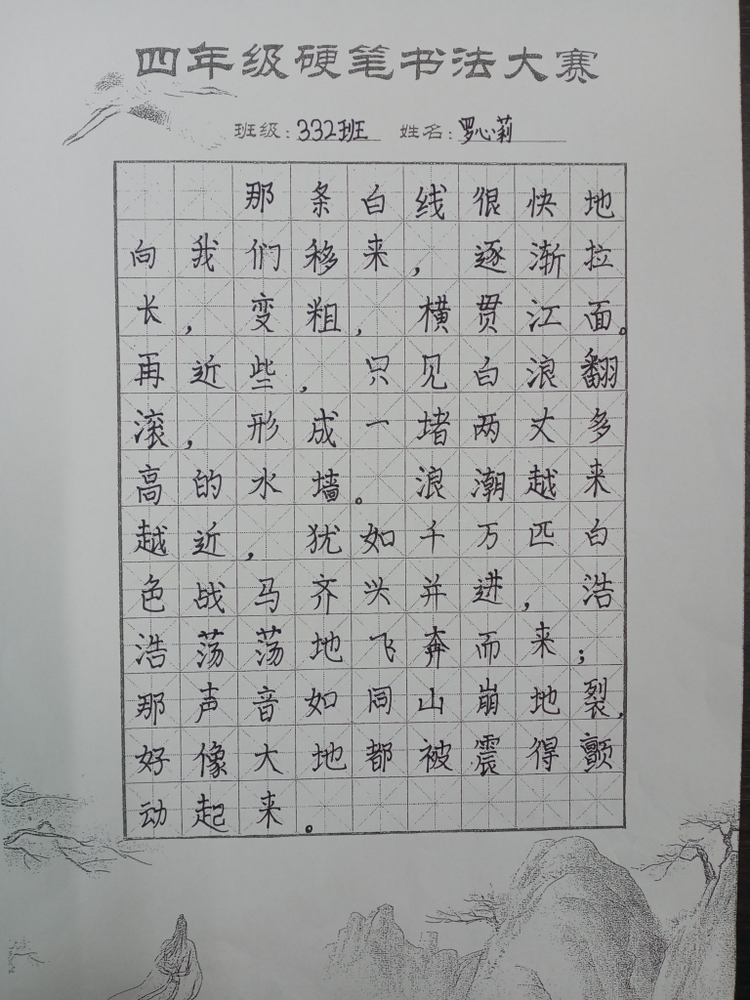 四年级硬笔书法大赛
班级:332班 姓名:罗心莉
那条白线很快地
向我们移来，逐渐拉
长，变粗，横贯江面。
再近些，只见白浪翻
滚，形成一堵两丈多
高的水墙。浪潮越来
越近，犹如千万匹白
色战马齐头并进，浩
浩荡荡地飞奔而来；
那声音如同山崩地裂，
好像大地都被震得颤
动起来。